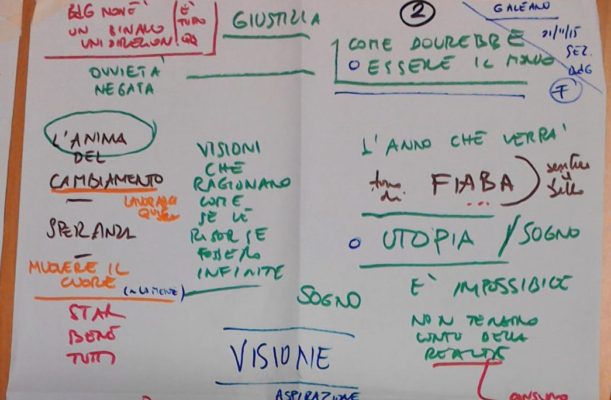 BdG NON È
UN BINARIO
UNIDIREZION
È
TUTTO
QQ
GIUSTIZIA
OVVIETA'
NEGATA
L'ANIMA
DEL
CAMBIAMENTO
SPERANZA
MUOVERE IL
CUORE
STAR
BENE
TUTTI
VISIONI
CHE
RAGIONANO
COME
SE LE
RISORSE
FOSSERO
INFINITE
SOGNO
VISIONE
ASPIRAZIONE
2
GALEANO
21/11/15
SEZ.
BdG
F
COME DOVREBBE
ESSERE IL MONDO
L'ANNO CHE VERRA'
FIABA
UTOPIA / SOGNO
È IMPOSSIBILE
NON TENIAMO
CONTO DELLA
REALTÀ
CONSUMO